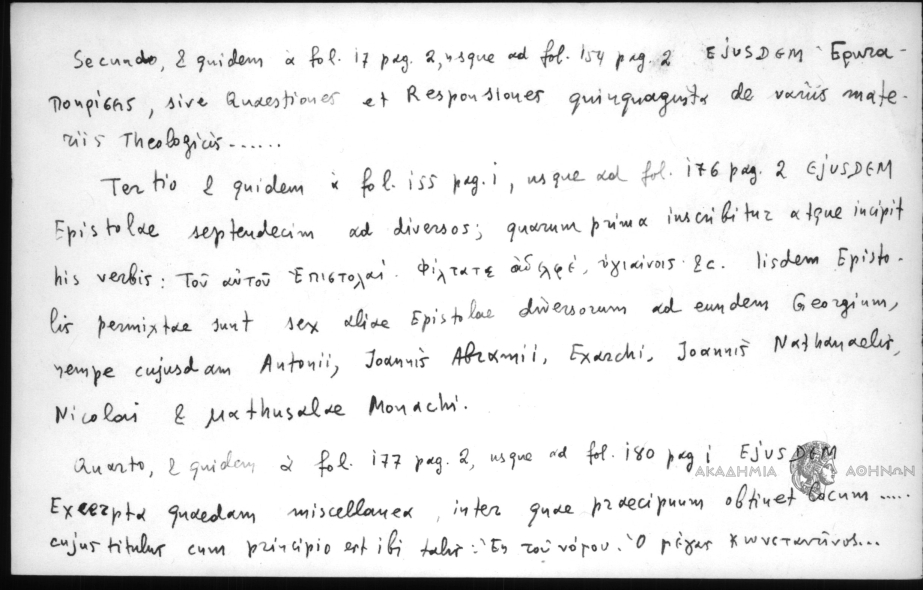 Secundo, & quidem à fol. 17 pag. 2, usque ad fol. 154 pag. 2 EJUSDEM Ερωτα-
ποκρίσεις, sive Quaestiones et Responsiones quinquaginta de variis mate-
riis Theologicis......
Tertio & quidem à fol. 155 pag. i, usque ad fol. 176 pag. 2 EJUSDEM
Epistolae septendecim ad diversos; quarum prima inscribitur atque incipit
his verbis: Τοῦ αὐτοῦ Ἐπιστολαί. Φίλτατε ἀδελφέ, ὑγιαίνοις &c. Iisdem Episto-
lis permixtae sunt sex aliae Epistolae diversorum ad eundem Georgium,
nempe cujusdam Antonii, Joannis Abramii, Exarchi, Joannis Nathanaelis,
Nicolai & Mathusalae Monachi.
Quarto, & quidem à fol. 177 pag. 2, usque ad fol. 180 pag i EJUSDEM
ΑΚΑΔΗΜΙΑ ΑΘΗΝΩΝ
Excerpta quaedam miscellanea, inter quae praecipuum obtinet locum .....
cujus titulus cum principio est ibi talis: Ἐκ τοῦ νόμου. Ὁ μέγας Κωνσταντῖνος...